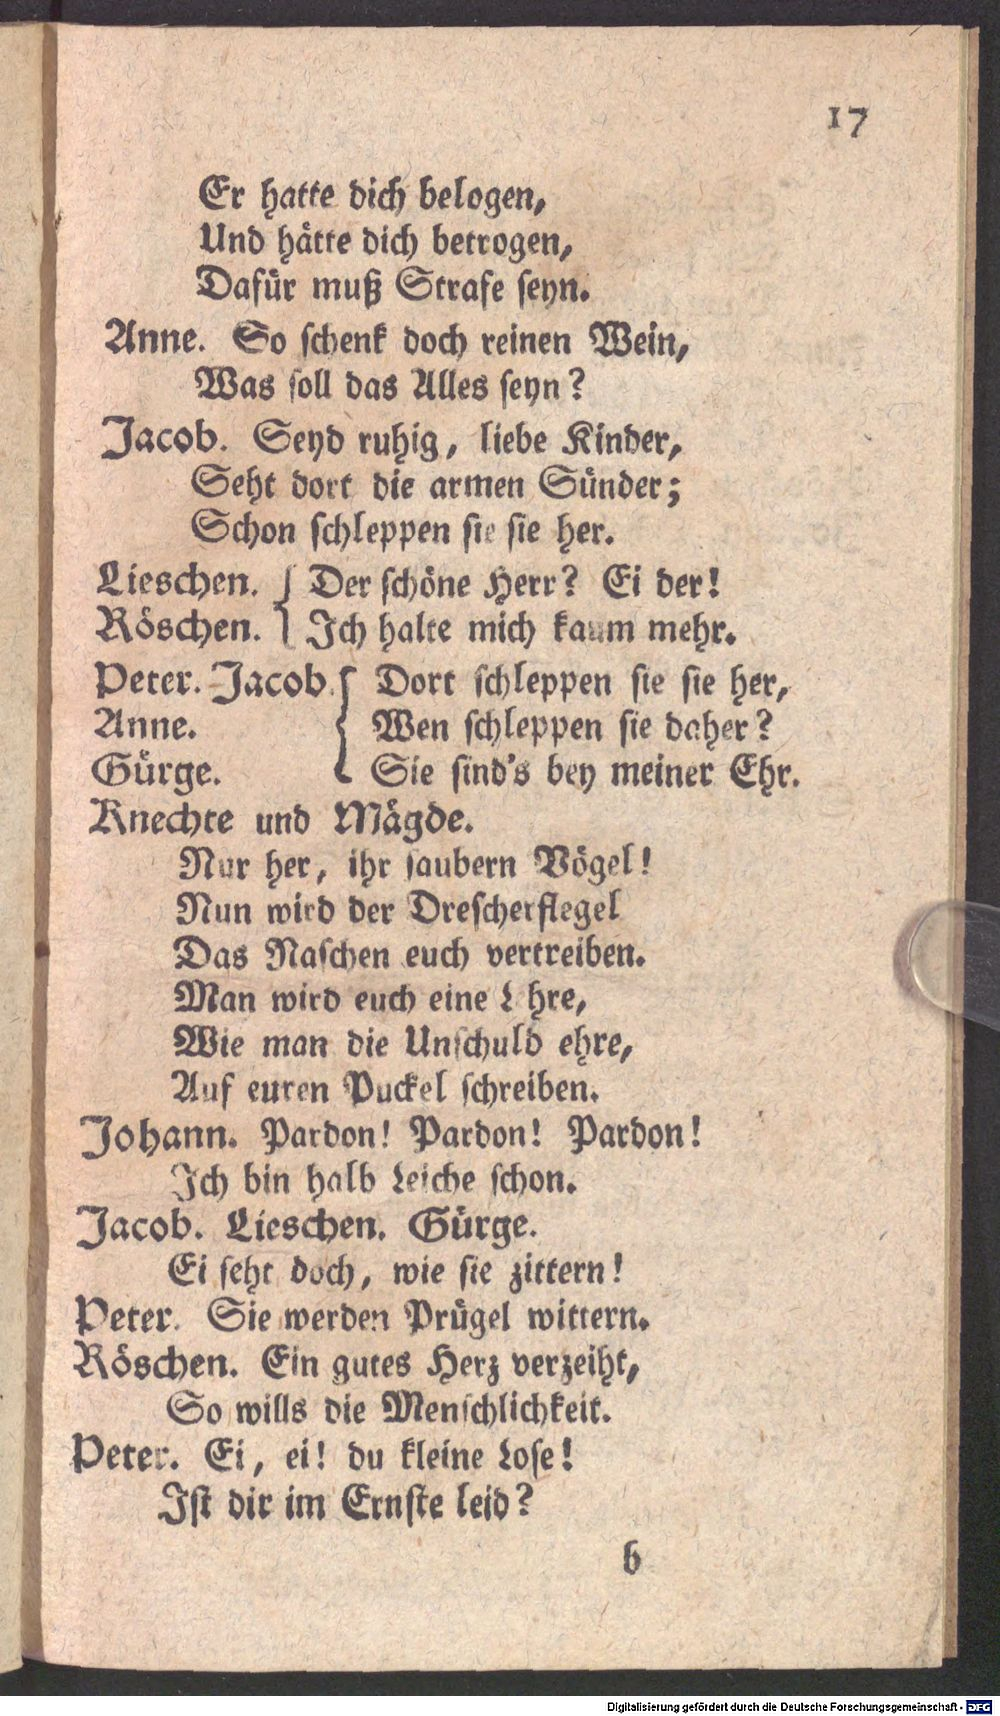 17
Er hatte dich belogen,
Und hätte dich betrogen,
Dafür muß Strafe seyn.
Anne. So schenk doch reinen Wein,
Was soll das Alles seyn?
Jacob. Seyd ruhig, liebe Kinder,
Seht dort die armen Sünder;
Schon schleppen sie sie her.
Lieschen. { Der schöne Herr? Ei der!
Röschen. } Ich halte mich kaum mehr.
Peter. Jacob. { Dort schleppen sie sie her,
Anne. Wen schleppen sie daher?
Gürge. Sie sind's bey meiner Ehr.
Knechte und Mägde.
Nur her, ihr saubern Vögel!
Nun wird der Drescherflegel
Das Naschen euch vertreiben.
Man wird euch eine L hre,
Wie man die Unschuld ehre,
Auf euren Puckel schreiben.
Johann. Pardon! Pardon! Pardon!
Ich bin halb Leiche schon.
Jacob. Lieschen. Gürge.
Ei seht doch, wie sie zittern!
Peter. Sie werden Prügel wittern.
Röschen. Ein gutes Herz verzeiht,
So wills die Menschlichkeit.
Peter. Ei, ei! du kleine Lose!
Ist dir im Ernste leid?
b
Digitalisierung gefördert durch die Deutsche Forschungsgemeinschaft - DFG